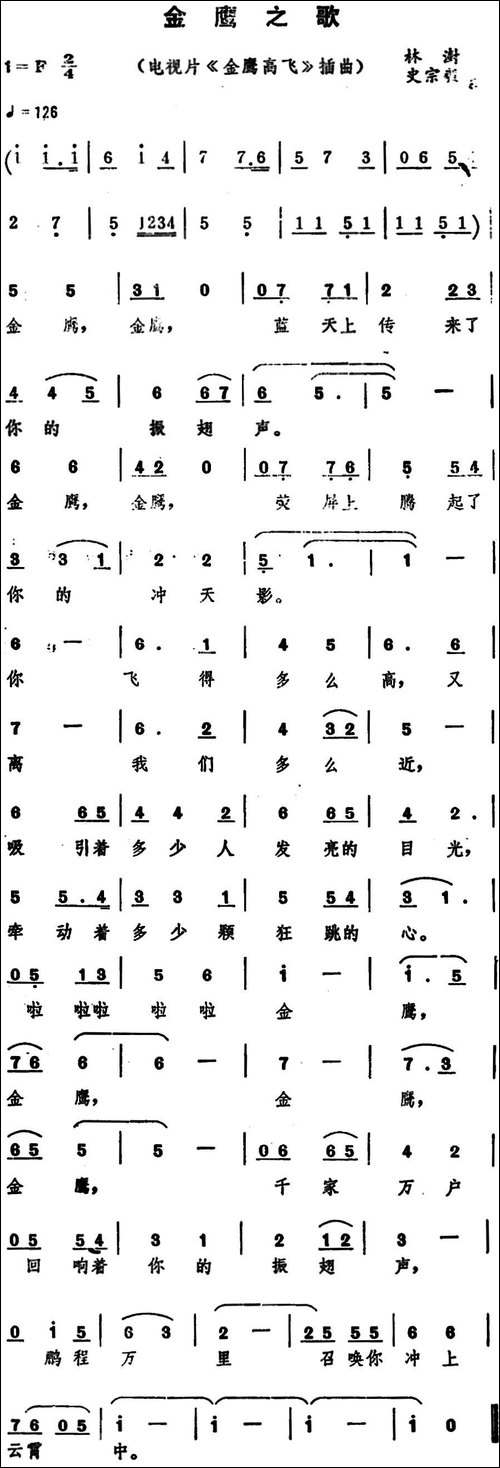 金鹰之歌
1=F 2/4 (电视片《金鹰高飞》插曲) 林澍
♩=126 史宗毅
(i i.i | 6 i 4 | 7 7.6 | 5 7 3 | 0 6 5
2 7 | 5 1234 | 5 5 | 1 1 5 1 | 1 1 5 1)
5 5 | 3 i 0 | 0 7 7 1 | 2 2 3
金 鹰, 金鹰, 蓝 天上 传 来了
4 4 5 | 6 6 7 | 6 5. | 5 —
你 的 振 翅 声。
6 6 | 4 2 0 | 0 7 7 6 | 5 5 4
金 鹰, 金鹰, 荧 屏上 腾 起了
3 3 1 | 2 2 | 5 1. | 1 —
你 的 冲 天 影。
6 — | 6. 1 | 4 5 | 6. 6
你 飞 得 多 么 高, 又
7 — | 6. 2 | 4 3 2 | 5 —
离 我 们 多 么 近,
6 6 5 | 4 4 2 | 6 6 5 | 4 2.
吸 引着 多 少 人 发 亮的 目 光,
5 5.4 | 3 3 1 | 5 5 4 | 3 1.
牵 动 着 多 少 颗 狂 跳的 心。
0 5 1 3 | 5 6 | i — | i. 5
啦 啦啦 啦 啦 金 鹰,
7 6 6 | 6 — | 7 — | 7. 3
金 鹰, 金 鹰,
6 5 5 | 5 — | 0 6 6 5 | 4 2
金 鹰, 千 家 万 户
0 5 5 4 | 3 1 | 2 1 2 | 3 —
回 响着 你 的 振 翅 声,
0 i 5 | 6 3 | 2 — | 2 5 5 5 | 6 6
鹏 程 万 里 召 唤你 冲 上
7 6 0 5 | i — | i — | i — | i 0
云霄 中。